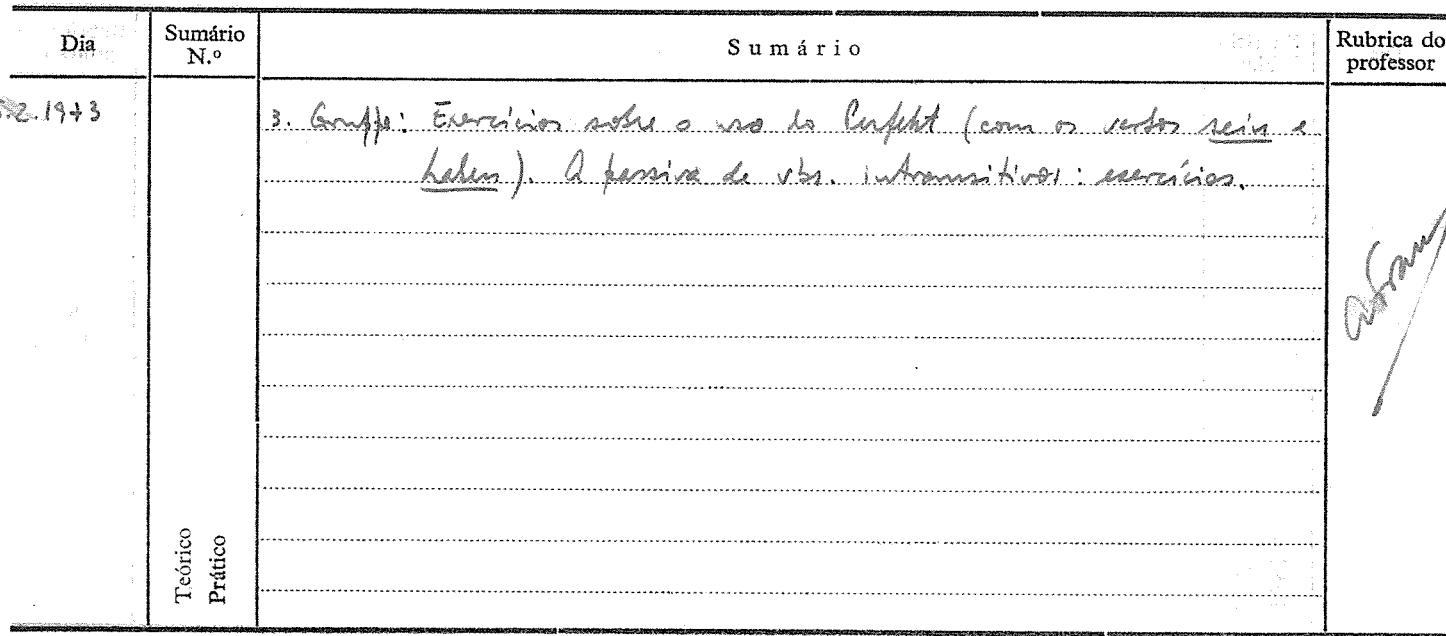 Dia
Sumário N.º
Sumário
Rubrica do professor
.2.1973
3. Gruppe: Exercícios sobre o uso do Perfekt (com os verbos sein e
haben). A passiva de vbs. intransitivos: exercícios.
Teórico
Prático